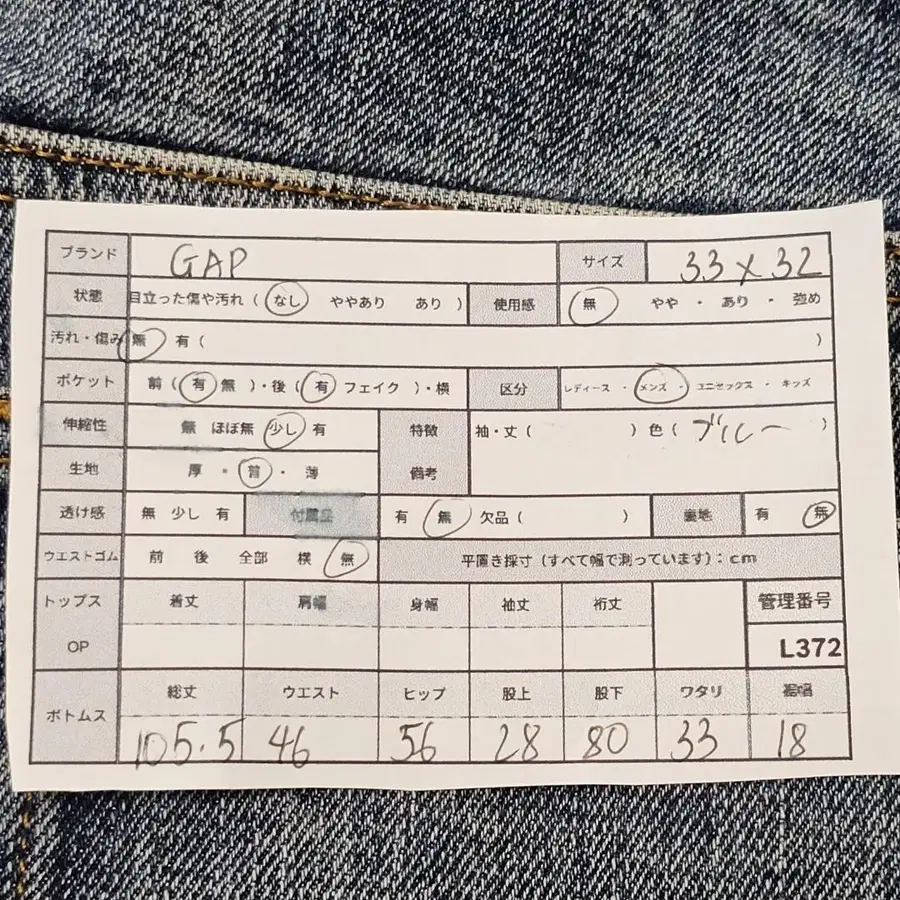 ブランド GAP サイズ 33 x 32
状態 目立った傷や汚れ ( なし ややあり あり ) 使用感 無 やや ・ あり ・ 強め
汚れ・傷み 無 有 ( )
ポケット 前 ( 有 無 )・後 ( 有 フェイク )・横 区分 レディース ・ メンズ ・ ユニセックス ・ キッズ
伸縮性 無 ほぼ無 少し 有 特徴 袖・丈 ( ) 色 ( ブルー )
生地 厚 ・ 普 ・ 薄 備考
透け感 無 少し 有 付属品 有 無 欠品 ( ) 裏地 有 無
ウエストゴム 前 後 全部 横 無 平置き採寸 (すべて幅で測っています) : cm
トップス 着丈 肩幅 身幅 袖丈 裄丈 管理番号
OP L372
ボトムス 総丈 ウエスト ヒップ 股上 股下 ワタリ 裾幅
105.5 46 56 28 80 33 18